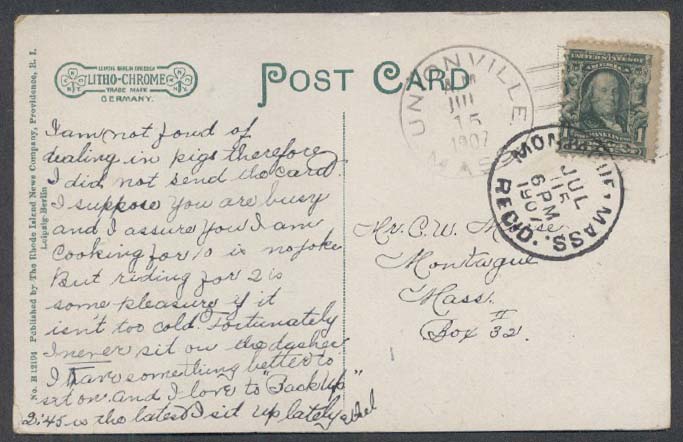 No. B 12194 Published by The Rhode Island News Company, Providence, R. I.
Leipzig Berlin
LEIPZIG BERLIN DRESDEN
LITHO-CHROME
TRADE MARK
GERMANY.
POST CARD
I am not fond of
dealing in pigs therefore
I did not send the card.
I suppose you are busy
and I assure you I am
Cooking for 10 is no joke
But riding for 2 is
some pleasure if it
isn't too cold. Fortunately
I never sit on the dasher
I have something better to
sit on. and I love to "Back up"
2:45 is the latest I sit up lately Ethel
UNIONVILLE
JUL
15
1907
MASS
UNITED STATES OF AMERICA
FRANKLIN
1
MONTAGUE, MASS.
JUL
15
6 PM
1907
REC'D.
Mr. C. W.
Montague
Mass.
Box 32.